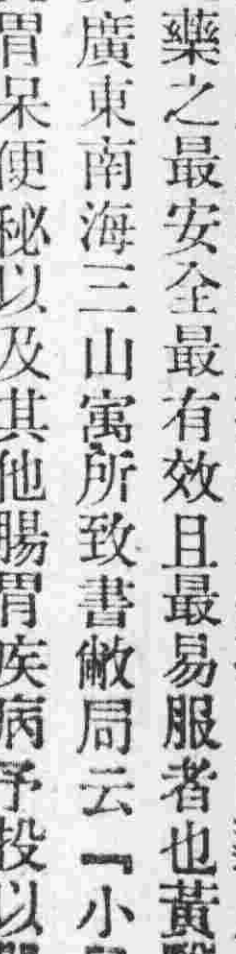 藥之最安全最有效且最易服者也黃醫
廣東南海三山寓所致書敝局云『小
胃呆便秘以及其他腸胃疾病予投以